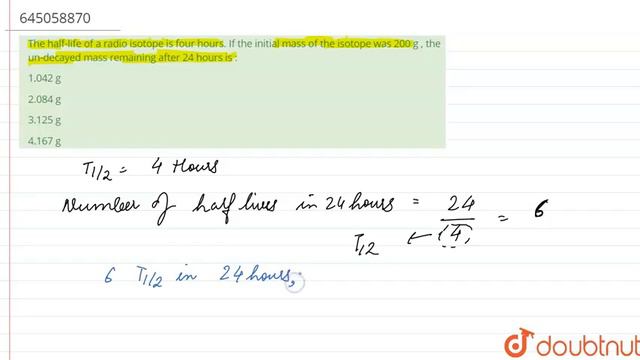 645058870
The half-life of a radio isotope is four hours. If the initial mass of the isotope was 200 g , the
un-decayed mass remaining after 24 hours is :
1.042 g
2.084 g
3.125 g
4.167 g
T1/2 = 4 Hours
Number of half lives in 24 hours = 24/(4) = 6
T1/2
6 T1/2 in 24 hours,
doubtnut